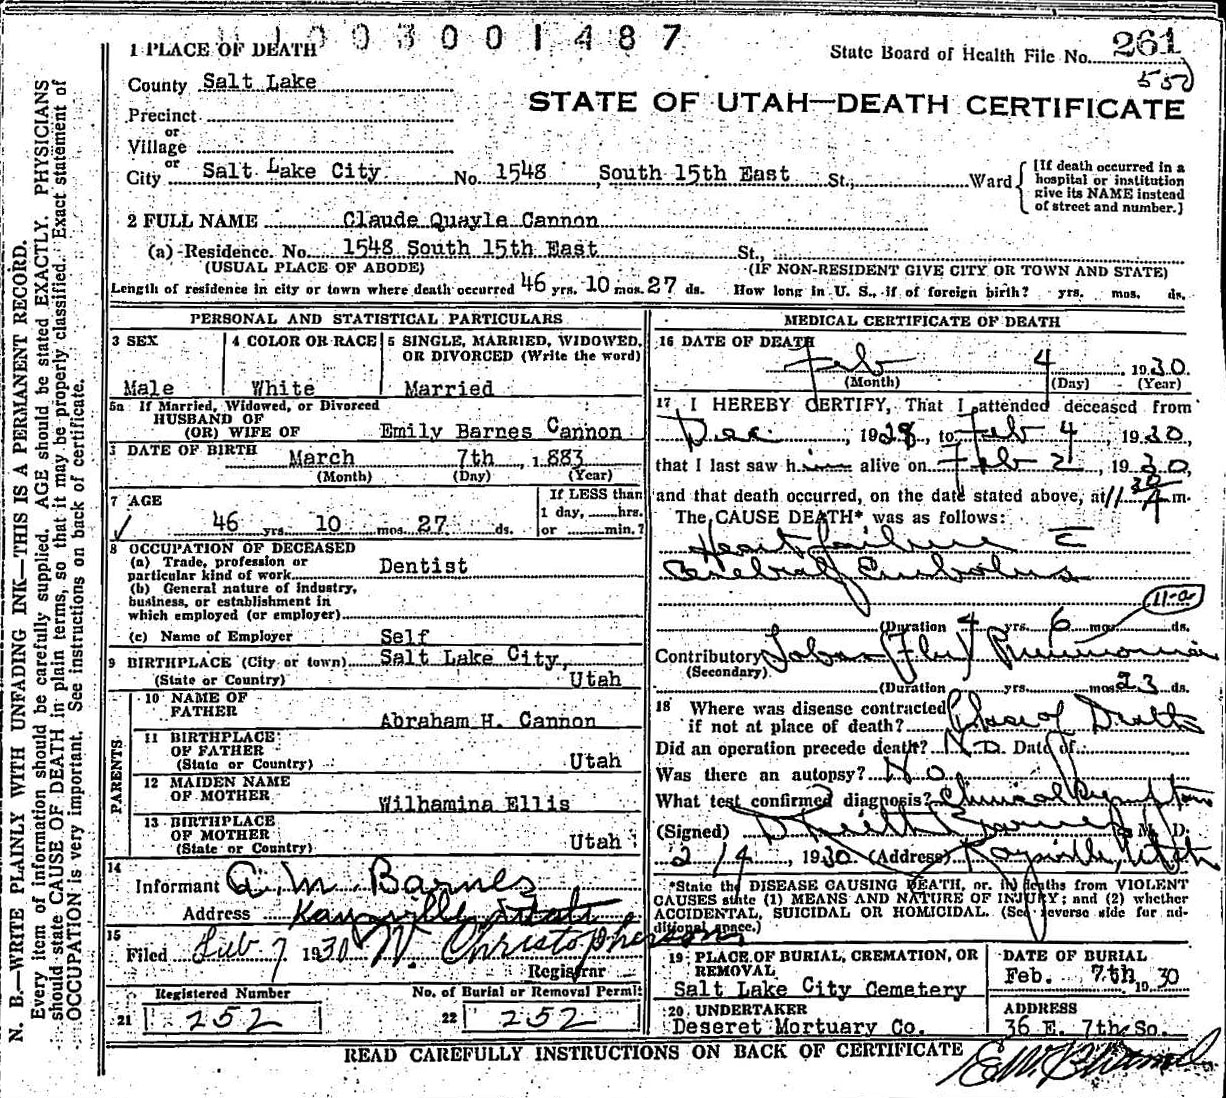 003001487
State Board of Health File No. 261
550
STATE OF UTAH—DEATH CERTIFICATE
1 PLACE OF DEATH
County Salt Lake
Precinct
or
Village
or
City Salt Lake City No. 1548 South 15th East St., Ward
[If death occurred in a
hospital or institution
give its NAME instead
of street and number.]
2 FULL NAME Claude Quayle Cannon
(a) Residence. No. 1548 South 15th East St.,
(USUAL PLACE OF ABODE) (IF NON-RESIDENT GIVE CITY OR TOWN AND STATE)
Length of residence in city or town where death occurred 46 yrs. 10 mos. 27 ds. How long in U. S., if of foreign birth? yrs. mos. ds.
PERSONAL AND STATISTICAL PARTICULARS
3 SEX
Male
4 COLOR OR RACE
White
5 SINGLE, MARRIED, WIDOWED,
OR DIVORCED (Write the word)
Married
5a If Married, Widowed, or Divorced
HUSBAND OF
(OR) WIFE OF Emily Barnes Cannon
DATE OF BIRTH March 7th, 1883
(Month) (Day) (Year)
7 AGE
46 yrs. 10 mos. 27 ds.
If LESS than
1 day, hrs.
or min.?
8 OCCUPATION OF DECEASED
(a) Trade, profession or
particular kind of work Dentist
(b) General nature of industry,
business, or establishment in
which employed (or employer)
(c) Name of Employer Self
9 BIRTHPLACE (City or town) Salt Lake City,
(State or Country) Utah
PARENTS
10 NAME OF
FATHER Abraham H. Cannon
11 BIRTHPLACE
OF FATHER
(State or Country) Utah
12 MAIDEN NAME
OF MOTHER Wilhamina Ellis
13 BIRTHPLACE
OF MOTHER
(State or Country) Utah
14
Informant A. M. Barnes
Address Kaysville, Utah
15
Filed Feb 7 1930 W. Christopherson
Registrar
Registered Number
21 252
No. of Burial or Removal Permit
22 252
MEDICAL CERTIFICATE OF DEATH
16 DATE OF DEATH
Feb 4 1930
(Month) (Day) (Year)
17 I HEREBY CERTIFY, That I attended deceased from
Dec, 1928, to Feb 4, 1930,
that I last saw him alive on Feb 2, 1930,
and that death occurred, on the date stated above, at 11 30 A m.
The CAUSE DEATH* was as follows:
Heart failure c̄
Cerebral Embolus
11-a
(Duration 4 yrs. 6 mos. ds.
Contributory Lobar (Flu) Pneumonia
(Secondary)
(Duration yrs. mos. 23 ds.
18 Where was disease contracted
if not at place of death? Place of Death
Did an operation precede death? No. Date of
Was there an autopsy? No
What test confirmed diagnosis? Clinical Symptoms
(Signed) D Keith Barnes M. D.
2/4, 1930 (Address) Kaysville, Utah
*State the DISEASE CAUSING DEATH, or, in deaths from VIOLENT
CAUSES state (1) MEANS AND NATURE OF INJURY; and (2) whether
ACCIDENTAL, SUICIDAL OR HOMICIDAL. (See reverse side for ad-
ditional space.)
19 PLACE OF BURIAL, CREMATION, OR
REMOVAL
Salt Lake City Cemetery
DATE OF BURIAL
Feb. 7th 1930
20 UNDERTAKER
Deseret Mortuary Co.
ADDRESS
36 E. 7th So.
READ CAREFULLY INSTRUCTIONS ON BACK OF CERTIFICATE
N. B.—WRITE PLAINLY WITH UNFADING INK—THIS IS A PERMANENT RECORD.
Every item of information should be carefully supplied. AGE should be stated EXACTLY. PHYSICIANS
should state CAUSE OF DEATH in plain terms, so that it may be properly classified. Exact statement of
OCCUPATION is very important. See instructions on back of certificate.